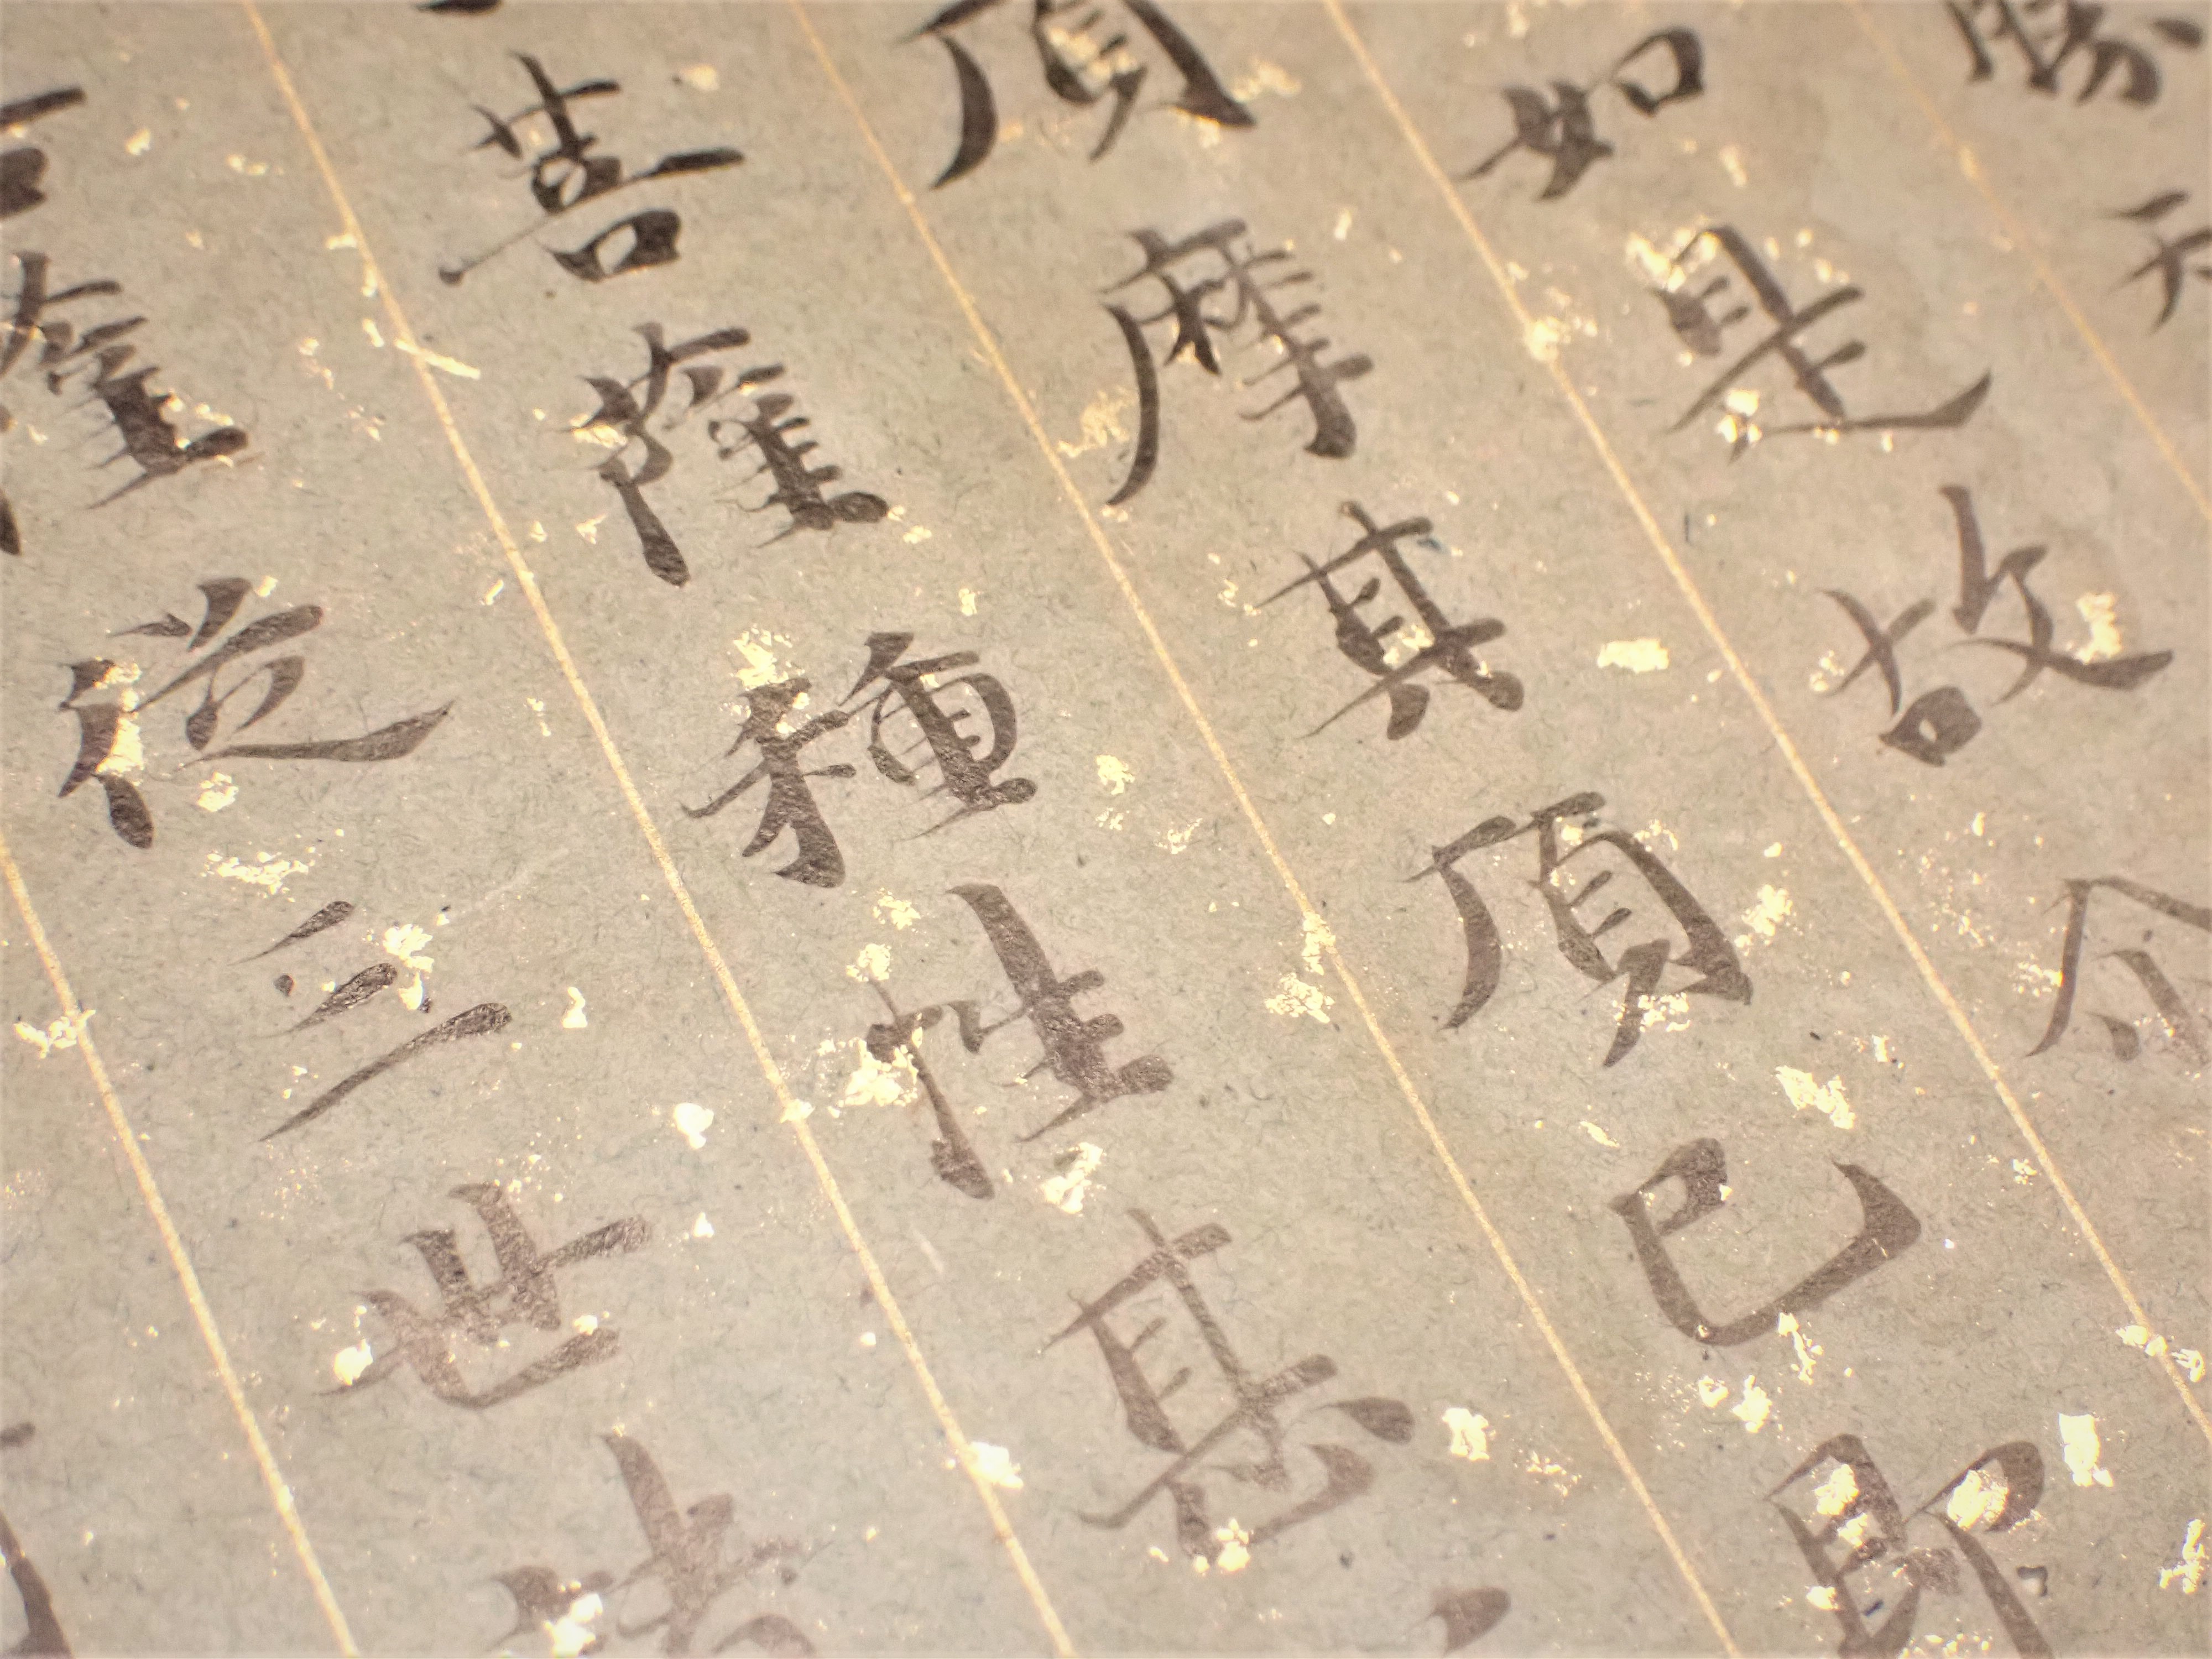 如是故今
頂摩其頂已即
菩薩種性甚
薩從三世